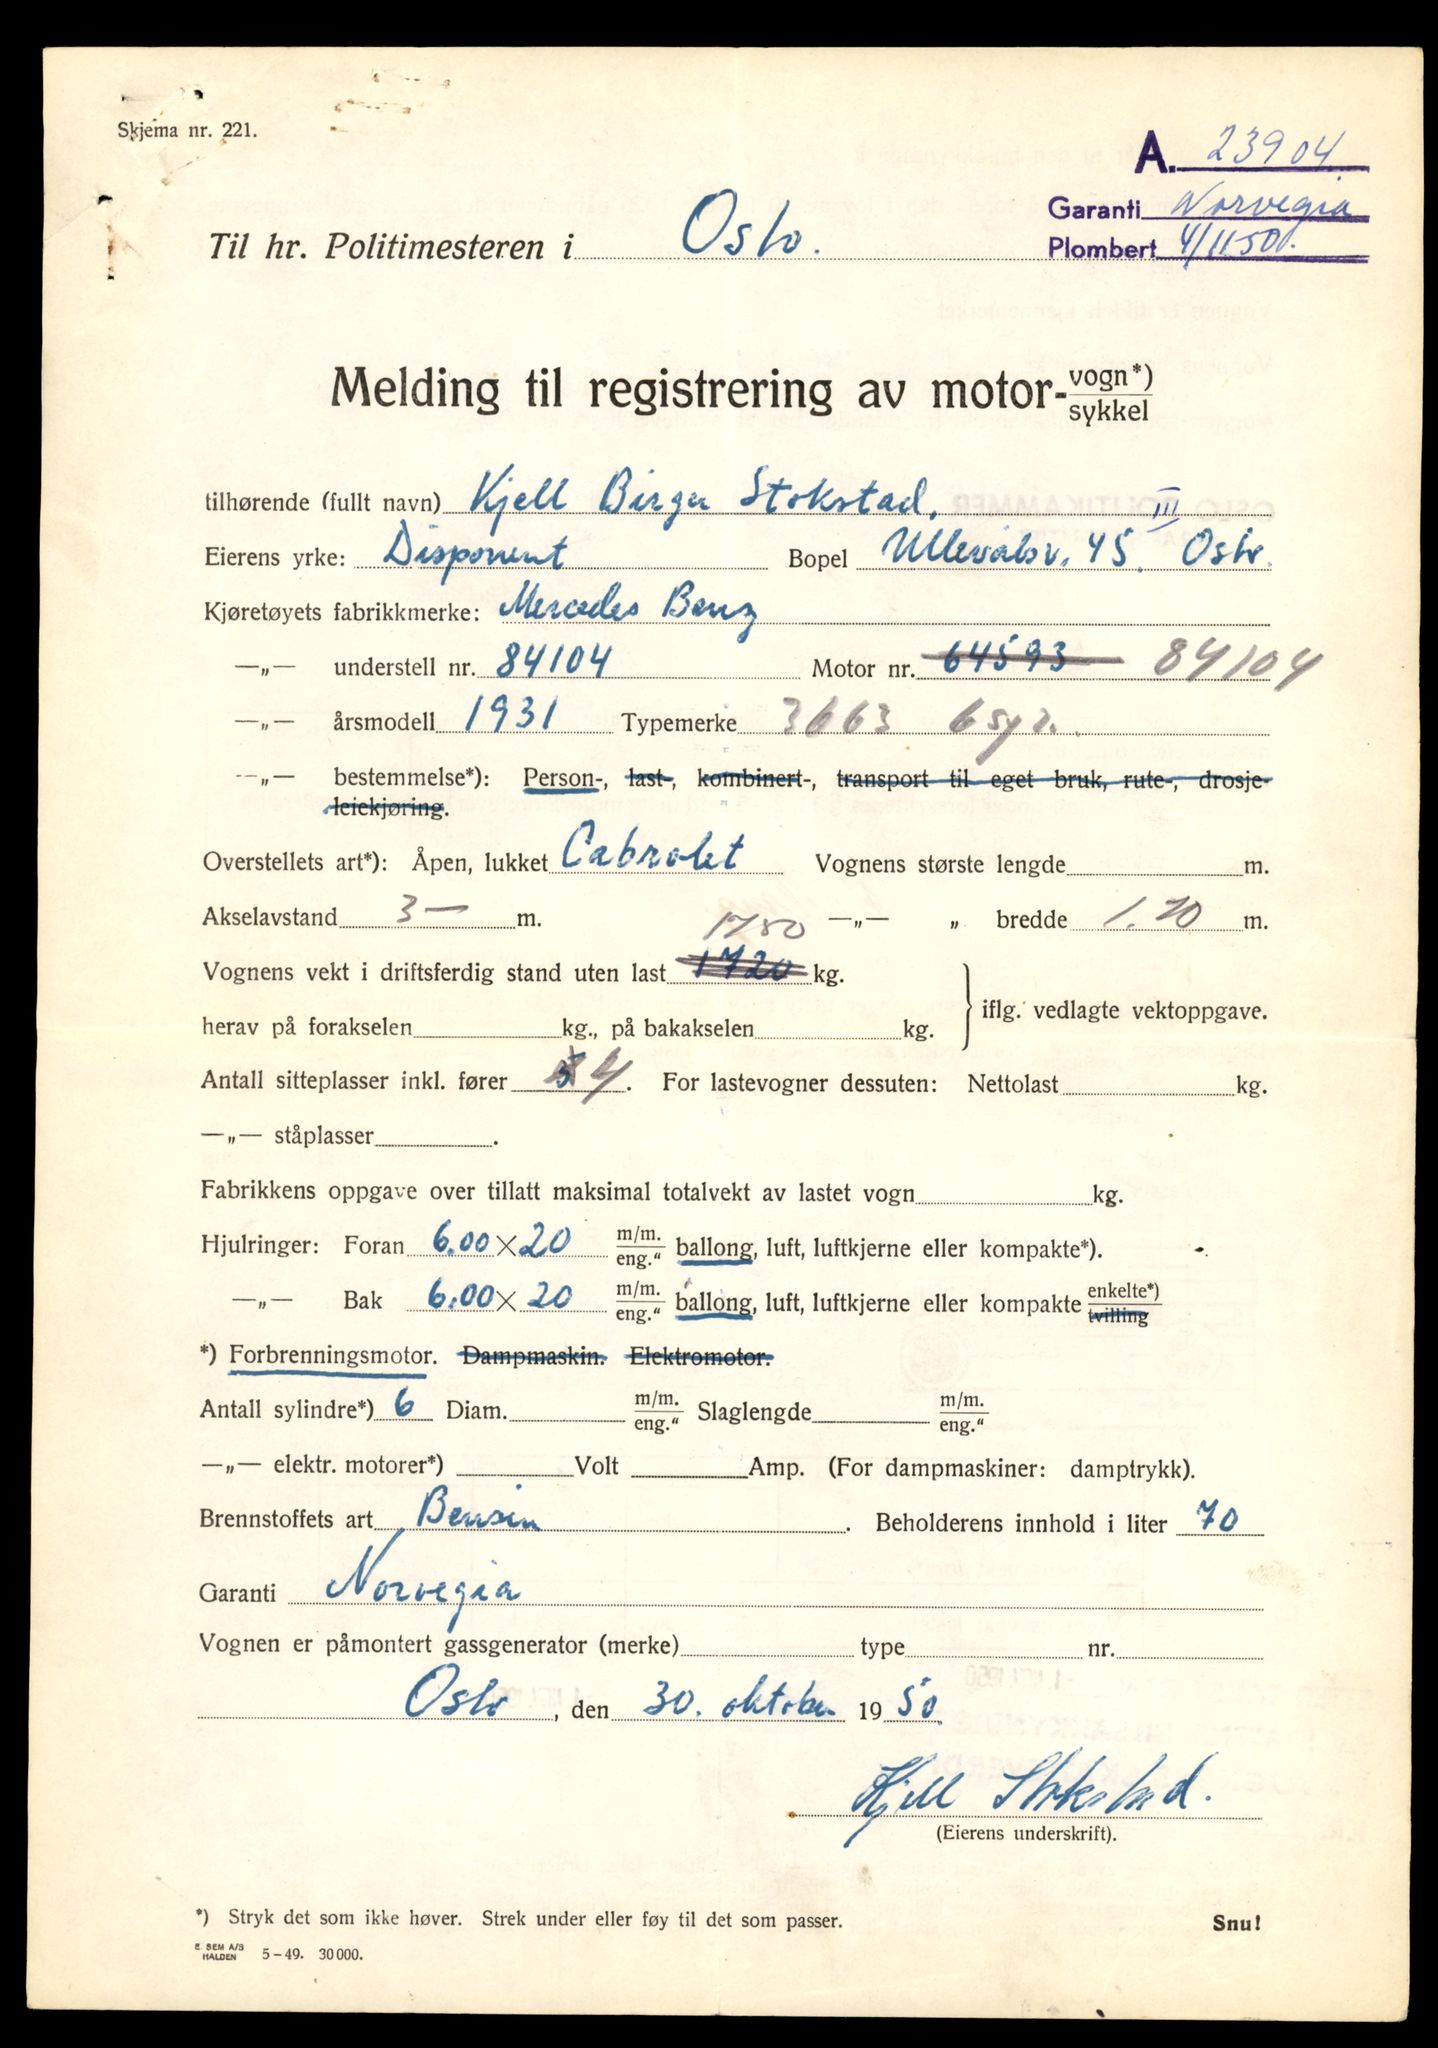 Skjema nr. 221.
A. 23904
Garanti Norvegia
Plombert 4/11.50.
Til hr. Politimesteren i Oslo.
Melding til registrering av motor-vogn*)
sykkel
tilhørende (fullt navn) Kjell Birger Stokstad,
Eierens yrke: Disponent Bopel Ullevålsv. 45 III Oslo.
Kjøretøyets fabrikkmerke: Mercedes Benz
—„— understell nr. 84104 Motor nr. 64593 84104
—„— årsmodell 1931 Typemerke 3663 6 syl.
—„— bestemmelse*): Person-, last-, kombinert-, transport til eget bruk, rute-, drosje-
leiekjøring.
Overstellets art*): Åpen, lukket Cabrolet Vognens største lengde m.
Akselavstand 3— m. —„— „ bredde 1.70 m.
Vognens vekt i driftsferdig stand uten last 1720 1750 kg.
herav på forakselen kg., på bakakselen kg. iflg. vedlagte vektoppgave.
Antall sitteplasser inkl. fører 5 4. For lastevogner dessuten: Nettolast kg.
—„— ståplasser .
Fabrikkens oppgave over tillatt maksimal totalvekt av lastet vogn kg.
Hjulringer: Foran 6.00 × 20 m/m. eng.“ ballong, luft, luftkjerne eller kompakte*).
—„— Bak 6.00 × 20 m/m. eng.“ ballong, luft, luftkjerne eller kompakte enkelte*) tvilling
*) Forbrenningsmotor. Dampmaskin. Elektromotor.
Antall sylindre*) 6 Diam. m/m. eng.“ Slaglengde m/m. eng.“
—„— elektr. motorer*) Volt Amp. (For dampmaskiner: damptrykk).
Brennstoffets art Bensin . Beholderens innhold i liter 70
Garanti Norvegia
Vognen er påmontert gassgenerator (merke) type nr.
Oslo, den 30. oktober 1950
Kjell Stokstad.
(Eierens underskrift).
*) Stryk det som ikke høver. Strek under eller føy til det som passer. Snu!
E. SEM A/S
HALDEN 5–49. 30 000.